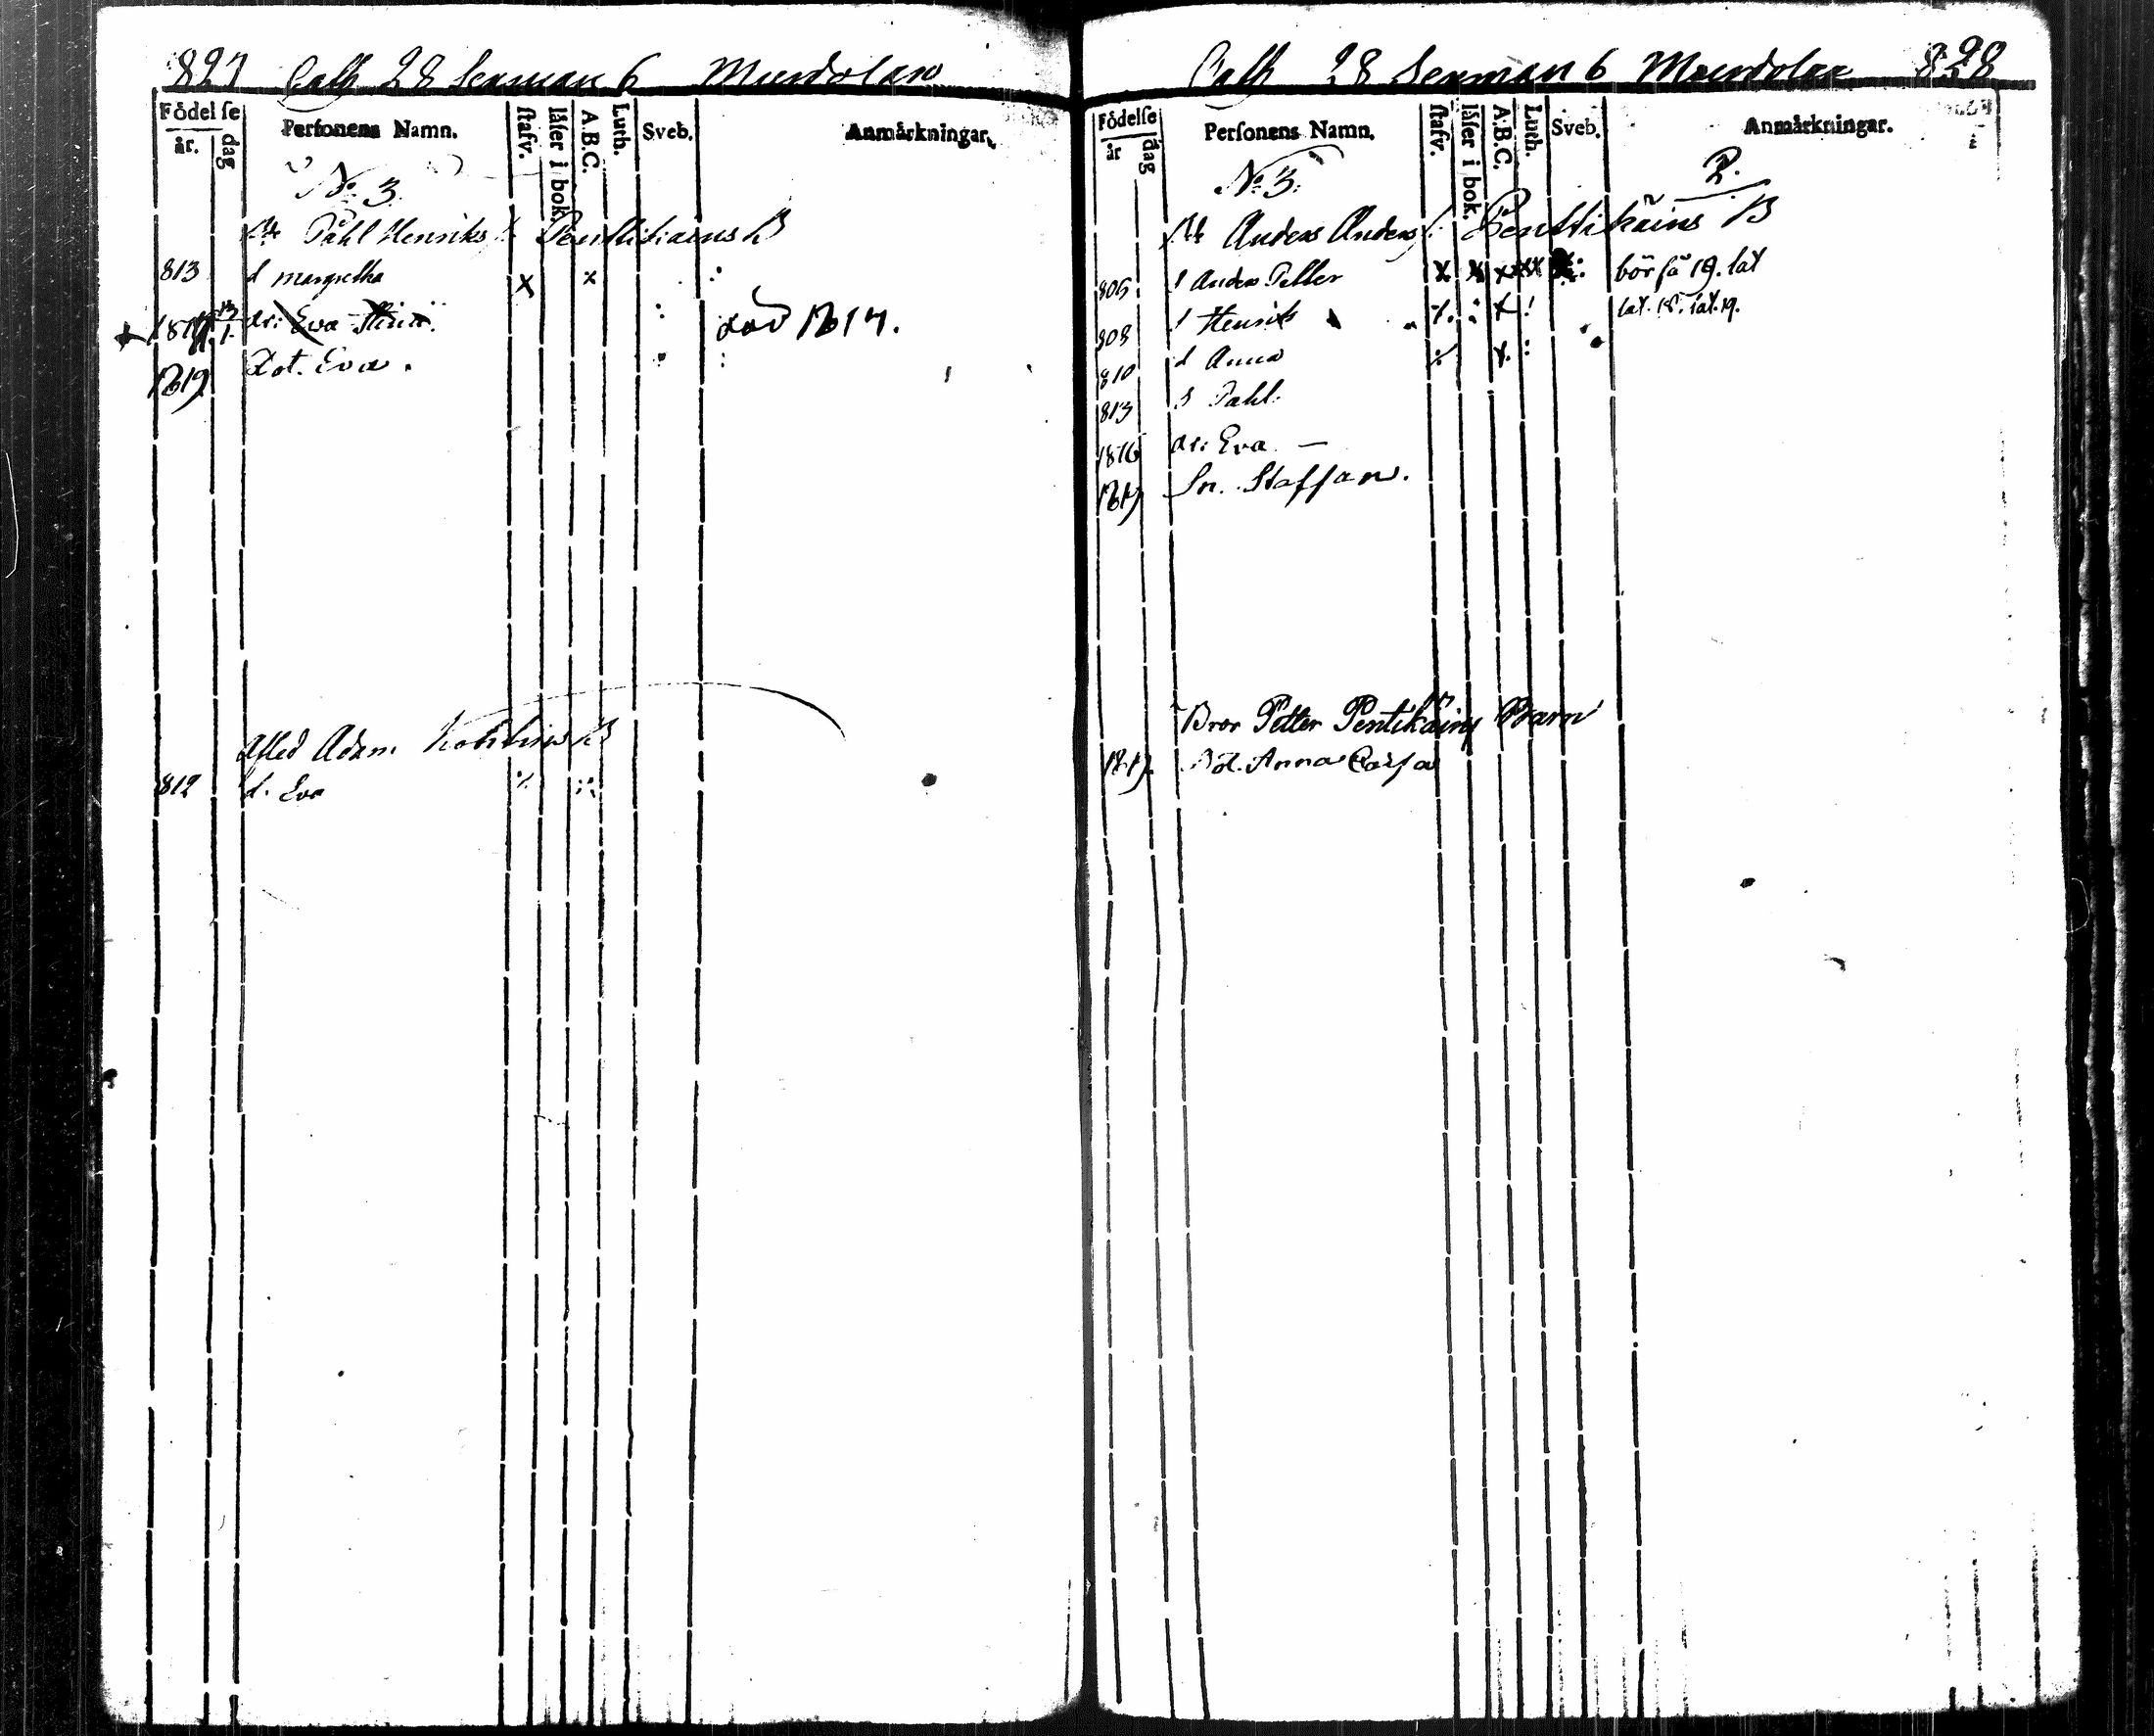 827 Calk 28 Lexman 6 Murdolax
Födelse
år. dag
Personens Namn.
stafv. läser i bok. A.B.C. Luth. Sveb.
Anmärkningar.
No 3.
Påhl Henriks Penttikäins B
813 d Margretha x x
1817 13/1 dr: Eva Stina död 1817.
1819 Dot. Eva.
Afled Adam
812 d. Eva
Calk 28 Lexman 6 Murdolax 828
Födelse
år dag
Personens Namn.
stafv. läser i bok. A.B.C. Luth. Sveb.
Anmärkningar.
No 3. 2.
Anders Anders Penttikäins B
805 s Anders Petter bör få 19. lat
808 s Henrik lat. 18. lat. 19.
810 d Anna
813 s Pahl.
1816 dr: Eva —
1819 Sn. Staffan.
Bror Petter Pentikäins Barn
1819. Dot. Anna Caisa